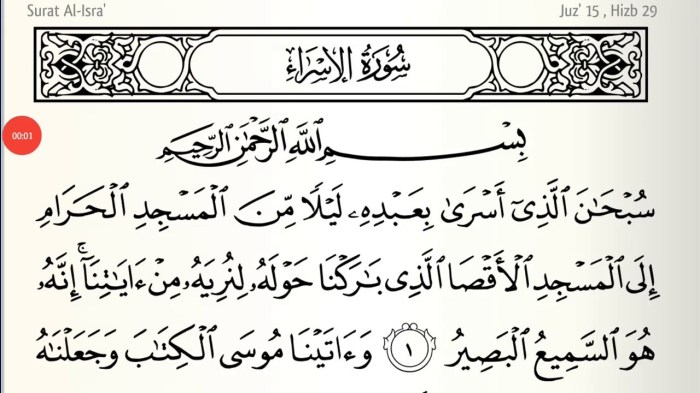 Surat Al-Isra' Juz' 15 , Hizb 29
سُورَةُ الإِسْرَاءِ
00:01
بِسْمِ ٱللَّهِ ٱلرَّحْمَٰنِ ٱلرَّحِيمِ
سُبْحَٰنَ ٱلَّذِىٓ أَسْرَىٰ بِعَبْدِهِۦ لَيْلًا مِّنَ ٱلْمَسْجِدِ ٱلْحَرَامِ
إِلَى ٱلْمَسْجِدِ ٱلْأَقْصَا ٱلَّذِى بَٰرَكْنَا حَوْلَهُۥ لِنُرِيَهُۥ مِنْ ءَايَٰتِنَآ ۚ إِنَّهُۥ
هُوَ ٱلسَّمِيعُ ٱلْبَصِيرُ ١ وَءَاتَيْنَا مُوسَى ٱلْكِتَٰبَ وَجَعَلْنَٰهُ